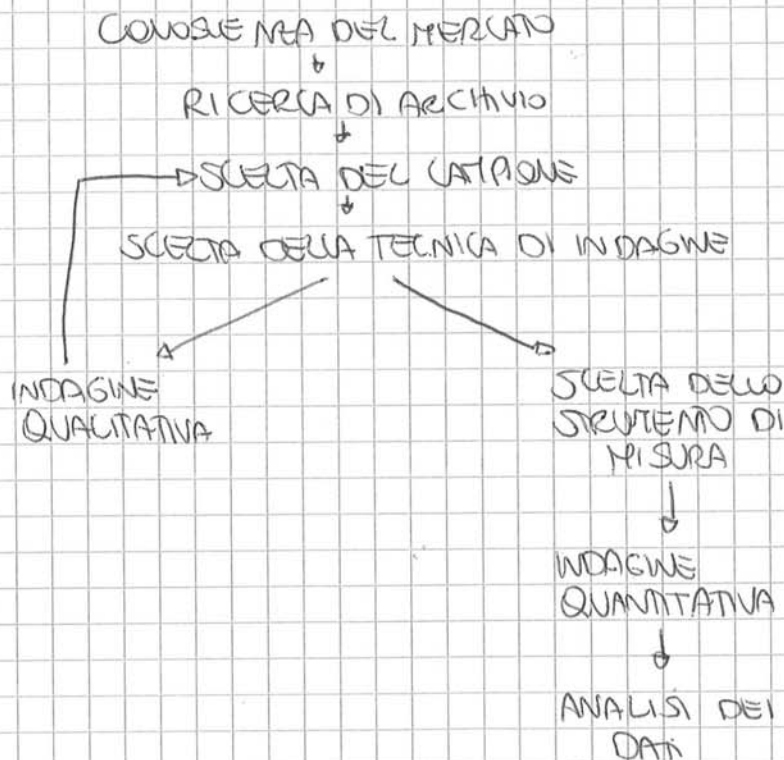 CONOSCENZA DEL MERCATO
RICERCA DI ARCHIVIO
SCELTA DEL CAMPIONE
SCELTA DELLA TECNICA DI INDAGINE
INDAGINE
QUALITATIVA
SCELTA DELLO
STRUMENTO DI
MISURA
INDAGINE
QUANTITATIVA
ANALISI DEI
DATI